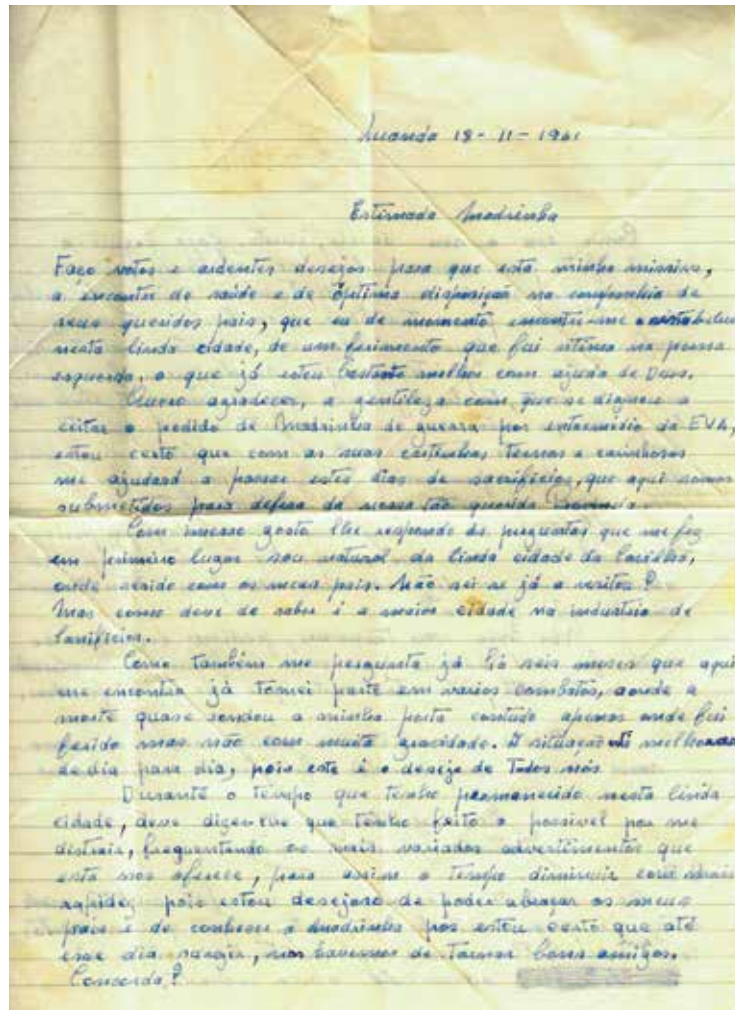 Luanda 18-11-1961
Estimada Madrinha
Faço votos e ardentes desejos para que esta minha missiva,
a encontre de saúde e de óptima disposição na companhia de
seus queridos pais, que eu de momento encontro-me a restabelecer
nesta linda cidade, de um ferimento que fui vitima na perna
esquerda, o que já estou bastante melhor com ajuda de Deus.
Quero agradecer, a gentileza com que se dignou a
ceitar o pedido de Madrinha de guerra por intermédio da EVA,
estou certo que com as suas cartinhas ternas e carinhosas
me ajudará a passar estes dias de sacrificios, que aqui somos
submetidos para defesa da nossa tão querida Provincia.
Com imenso gosto lhe respondo ás perguntas que me fez
em primeiro lugar sou natural da linda cidade da Covilhã,
onde resido com os meus pais. Não sei se já a visitou?
Mas como deve de saber é a maior cidade na industria de
Lanificios.
Como também me pergunta já há seis meses que aqui
me encontro já tomei parte em varios combates, aonde a
morte quase rondou a minha porta contudo apenas onde fui
ferido mas não com muita gravidade. A situação melhorando
de dia para dia, pois este é o desejo de Todos nós
Durante o tempo que tenho permanecido nesta linda
cidade, devo dizer-lhe que tenho feito o possivel por me
distrair, frequentando os mais variados advertimentos que
esta nos oferece, para assim o tempo diminuir com mais
rapidez pois estou desejoso de poder abraçar os meus
pais e de conhecer a Madrinha pois estou certo que até
esse dia surgir, nos havemos de tornar bons amigos.
Concorda?